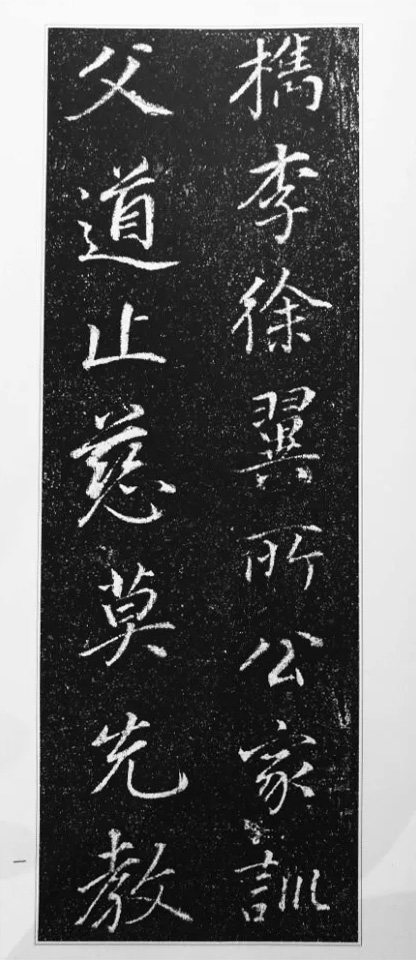 檇李徐翼所公家訓
父道止慈莫先教
一